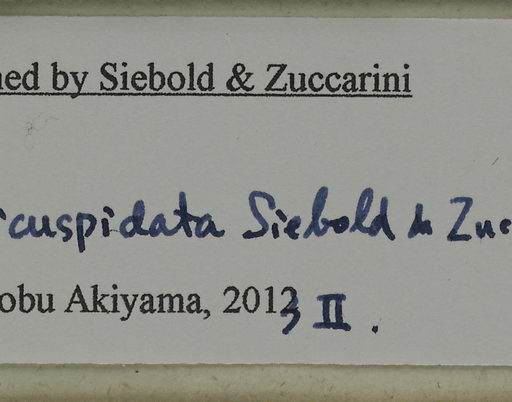 ned by Siebold & Zuccarini
icuspidata Siebold & Zuc
obu Akiyama, 2013 II.